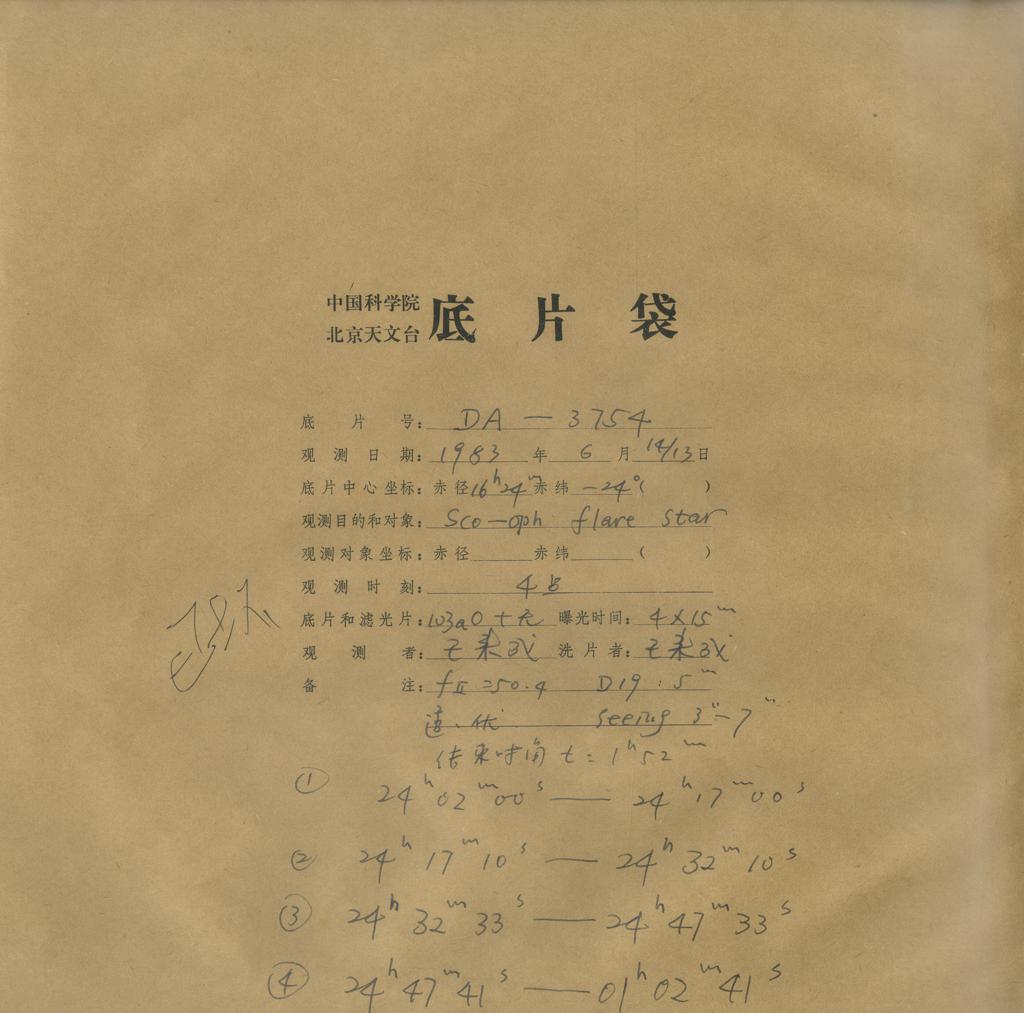 中国科学院
北京天文台
底片袋
底片号: DA — 3754
观测日期: 1983 年 6 月 14/13 日
底片中心坐标: 赤径 16h24m 赤纬 -24°( )
观测目的和对象: Sco-oph flare star
观测对象坐标: 赤径 赤纬 ( )
观测时刻: 4点
底片和滤光片: 103aO + 无 曝光时间: 4×15m
观测者: 洗片者:
备注: f=50.4 D19: 5m
优 Seeing 3"-7"
结束时角 t = 1h52m
① 24h02m00s — 24h17m00s
② 24h17m10s — 24h32m10s
③ 24h32m33s — 24h47m33s
④ 24h47m41s — 01h02m41s